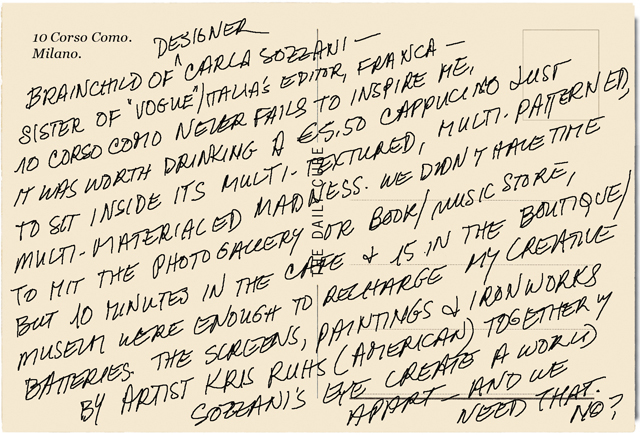 10 Corso Como.
Milano.
DESIGNER
BRAINCHILD OF ^ CARLA SOZZANI —
SISTER OF "VOGUE"/ITALIA'S EDITOR, FRANCA —
10 CORSO COMO NEVER FAILS TO INSPIRE ME.
IT WAS WORTH DRINKING A €5.50 CAPPUCINO JUST
TO SIT INSIDE ITS MULTI-TEXTURED, MULTI-PATTERNED,
MULTI-MATERIALED MADNESS. WE DIDN'T HAVE TIME
TO HIT THE PHOTO GALLERY OR BOOK/MUSIC STORE,
BUT 10 MINUTES IN THE CAFE & 15 IN THE BOUTIQUE/
MUSEUM WERE ENOUGH TO RECHARGE MY CREATIVE
BATTERIES. THE SCREENS, PAINTINGS & IRONWORKS
BY ARTIST KRIS RUHS (AMERICAN) TOGETHER W
SOZZANI'S EYE CREATE A WORLD
APART — AND WE
NEED THAT.
NO?
THE DAILY